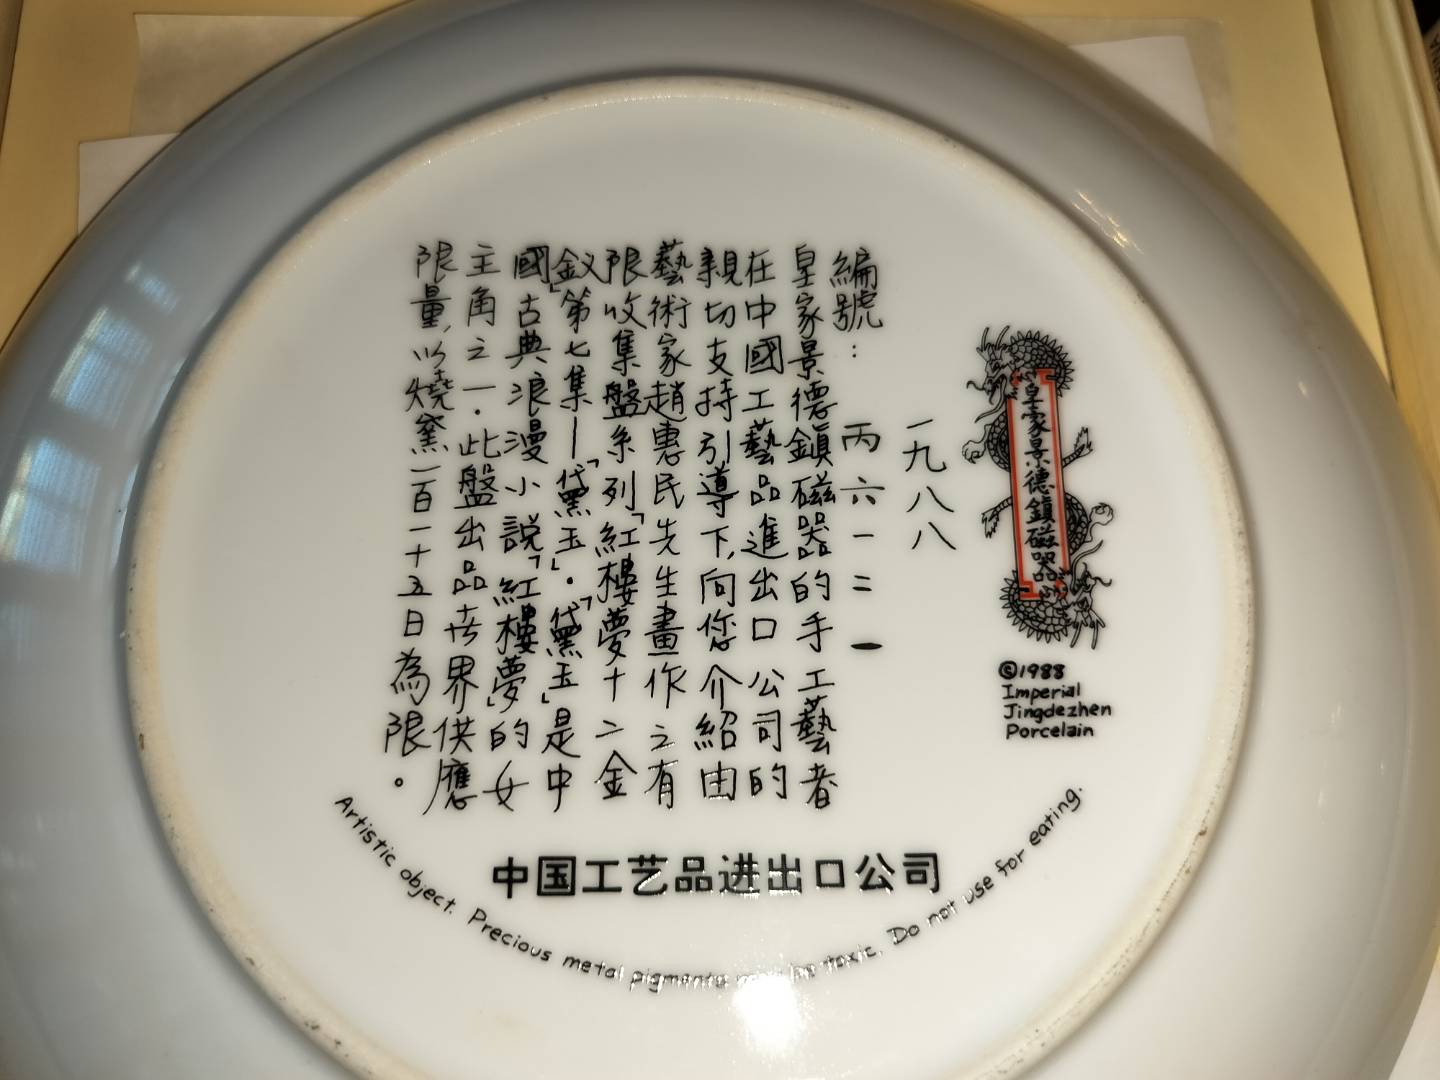 皇家景德鎮磁器
©1988
Imperial
Jingdezhen
Porcelain
一九八八
編號：丙六一二一
皇家景德鎮磁器的手工藝者
在中國工藝品進出口公司的
親切支持引導下,向您介紹由
藝術家趙惠民先生畫作之有
限收集盤系列「紅樓夢十二金
釵」第七集—「黛玉」。「黛玉」是中
國古典浪漫小說「紅樓夢」的女
主角之一.此盤出品世界供應
限量,以燒窯一百一十五日為限。
中国工艺品进出口公司
Artistic object. Precious metal pigments may be toxic. Do not use for eating.